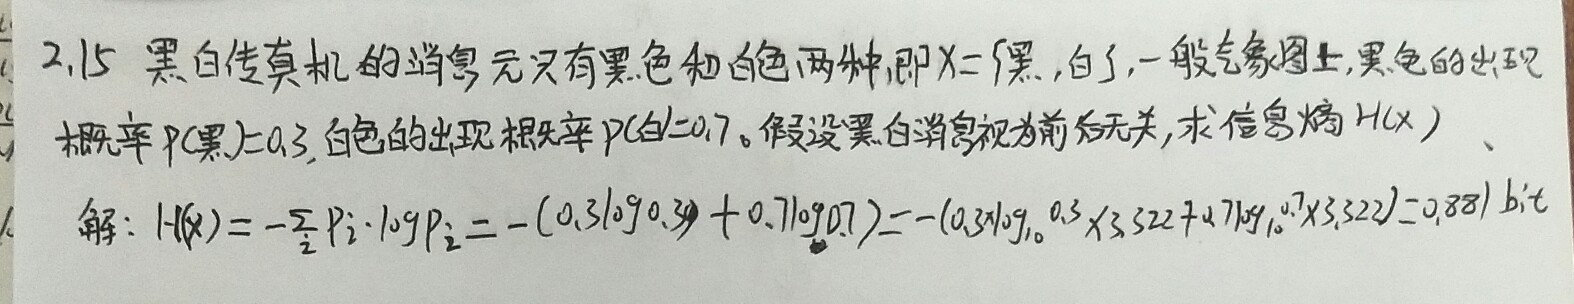 2.15 黑白传真机的消息元只有黑色和白色两种,即X={黑,白},一般气象图上,黑色的出现
概率P(黑)=0.3,白色的出现概率P(白)=0.7。假设黑白消息视为前后无关,求信息熵H(X)
解: H(X)=-∑i Pi·logPi=-(0.3log0.3+0.7log0.7)=-(0.3log₁₀0.3×3.322+0.7log₁₀0.7×3.322)=0.881 bit